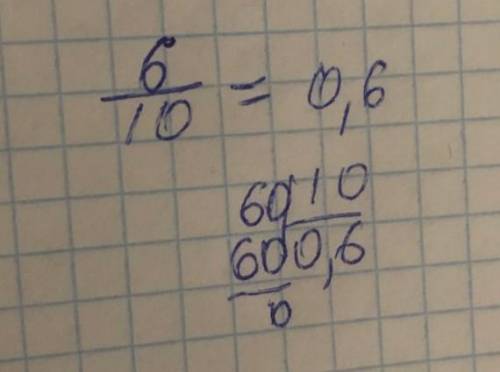 6/10 = 0,6
60 | 10
60 | 0,6
0